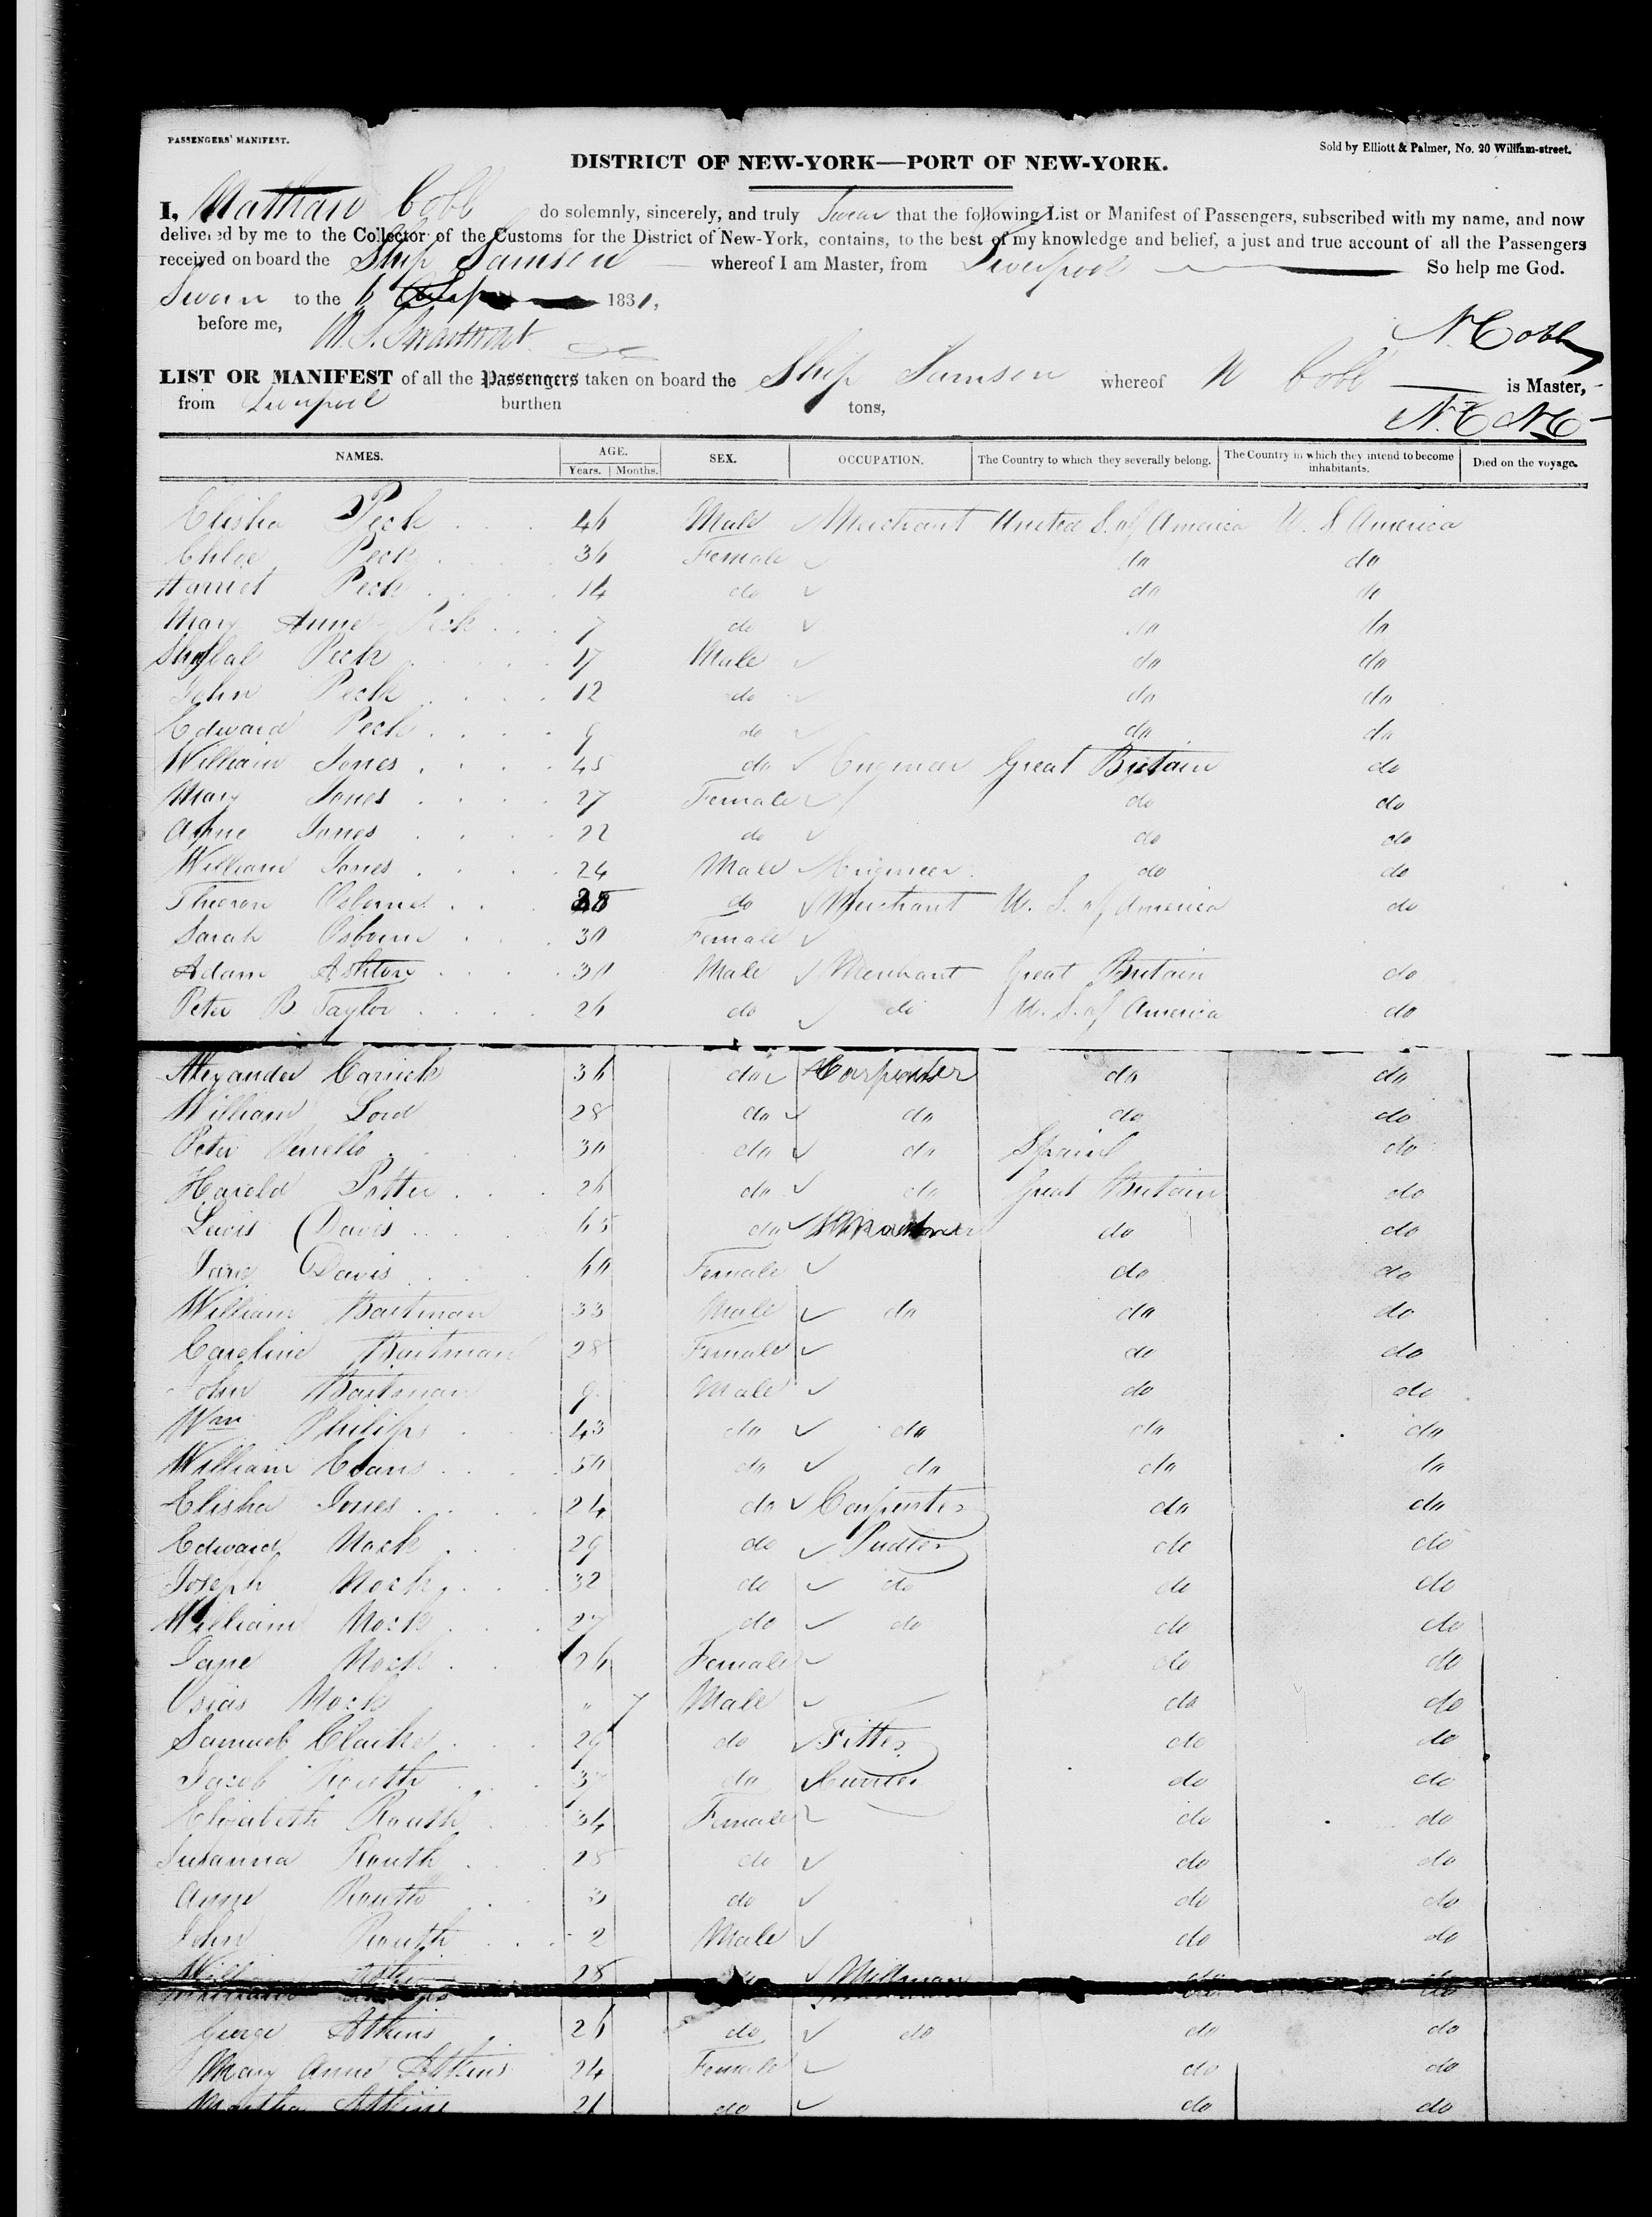 PASSENGERS' MANIFEST.
Sold by Elliott & Palmer, No. 20 William-street.
DISTRICT OF NEW-YORK—PORT OF NEW-YORK.
I, Nathan Cobb do solemnly, sincerely, and truly Swear that the following List or Manifest of Passengers, subscribed with my name, and now
delivered by me to the Collector of the Customs for the District of New-York, contains, to the best of my knowledge and belief, a just and true account of all the Passengers
received on board the Ship Samson whereof I am Master, from Liverpool So help me God.
Sworn to the 6 1831,
before me,
N. Cobb
LIST OR MANIFEST of all the Passengers taken on board the Ship Samson whereof N Cobb is Master,
from Liverpool burthen tons,
N.C N.C
NAMES. AGE. SEX. OCCUPATION. The Country to which they severally belong. The Country in which they intend to become inhabitants. Died on the voyage.
Years. Months.
Elisha Peck 46 Male Merchant United S. of America U. S. America
Chloe Peck 36 Female do do
Harriet Peck 14 do do do
Mary Anne Peck 7 do do do
Peck 17 Male do do
John Peck 12 do do do
Edward Peck 9 do do do
William Jones 45 do Engineer Great Britain do
Mary Jones 27 Female do do
Anne Jones 22 do do do
William Jones 24 Male Engineer do do
Theron Osborne do Merchant U. S. of America do
Sarah Osborne 30 Female
Adam Ashton 30 Male Merchant Great Britain do
Peter B Taylor 26 do do U. S. of America do
Alexander Carrick 36 do Carpenter do do
William Lord 28 do do do do
Peter 30 do do Spain do
Harold Potter 26 do do Great Britain do
Lewis Davis 65 do do do
Jane Davis 60 Female do do
William Bartman 33 Male do do do
Caroline Bartman 28 Female do do
John Bartman 9 Male do do
Wm Philips 43 do do do do
William Evans 50 do do do do
Elisha Jones 24 do Carpenter do do
Edward Nock 29 do Pudler do do
Joseph Nock 32 do do do do
William Nock 27 do do do do
Jane Nock 26 Female do do
Osias Nock " 7 Male do do
Samuel Clarke 29 do Fitter do do
Jacob Routh 37 do do do
Elizabeth Routh 34 Female do do
Susanna Routh 28 do do do
Anne Routh 3 do do do
John Routh 2 Male do do
William Atkins 28 Millman do do
George Atkins 26 do do do do
Mary Anne Atkins 24 Female do do
Martha Atkins 21 do do do